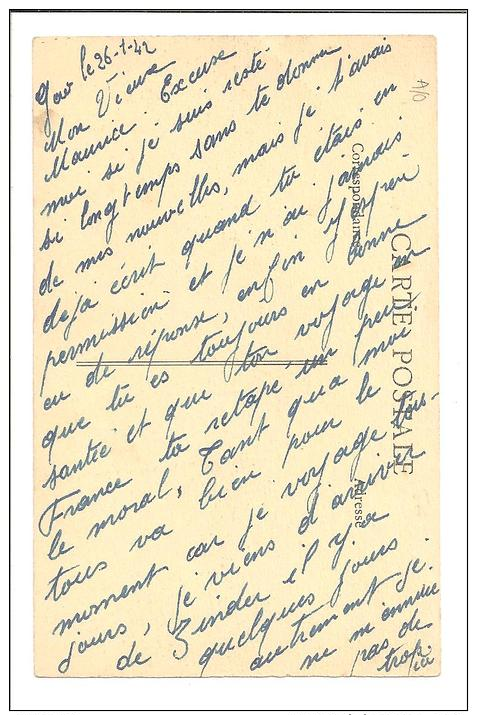 Gao le 26-1-42
Mon Vieux
Maurice. Excuse
moi si je suis resté
si longtemps sans te donner
de mes nouvelles, mais je t'avais
déjà écrit quand tu étais en
permission et je n'ai jamais
eu de réponse, enfin j'espère
que tu es toujours en bonne
santée et que ton voyage en
France ta retapé un peu
le moral, Tant qu'a moi
tous va bien pour le
moment car je voyage tou-
jours, je viens d'arriver
de Zinder il y a
quelques jours.
autrement je
ne m'ennuie
pas de
trop ici
A/O
CARTE POSTALE
Correspondance
Adresse